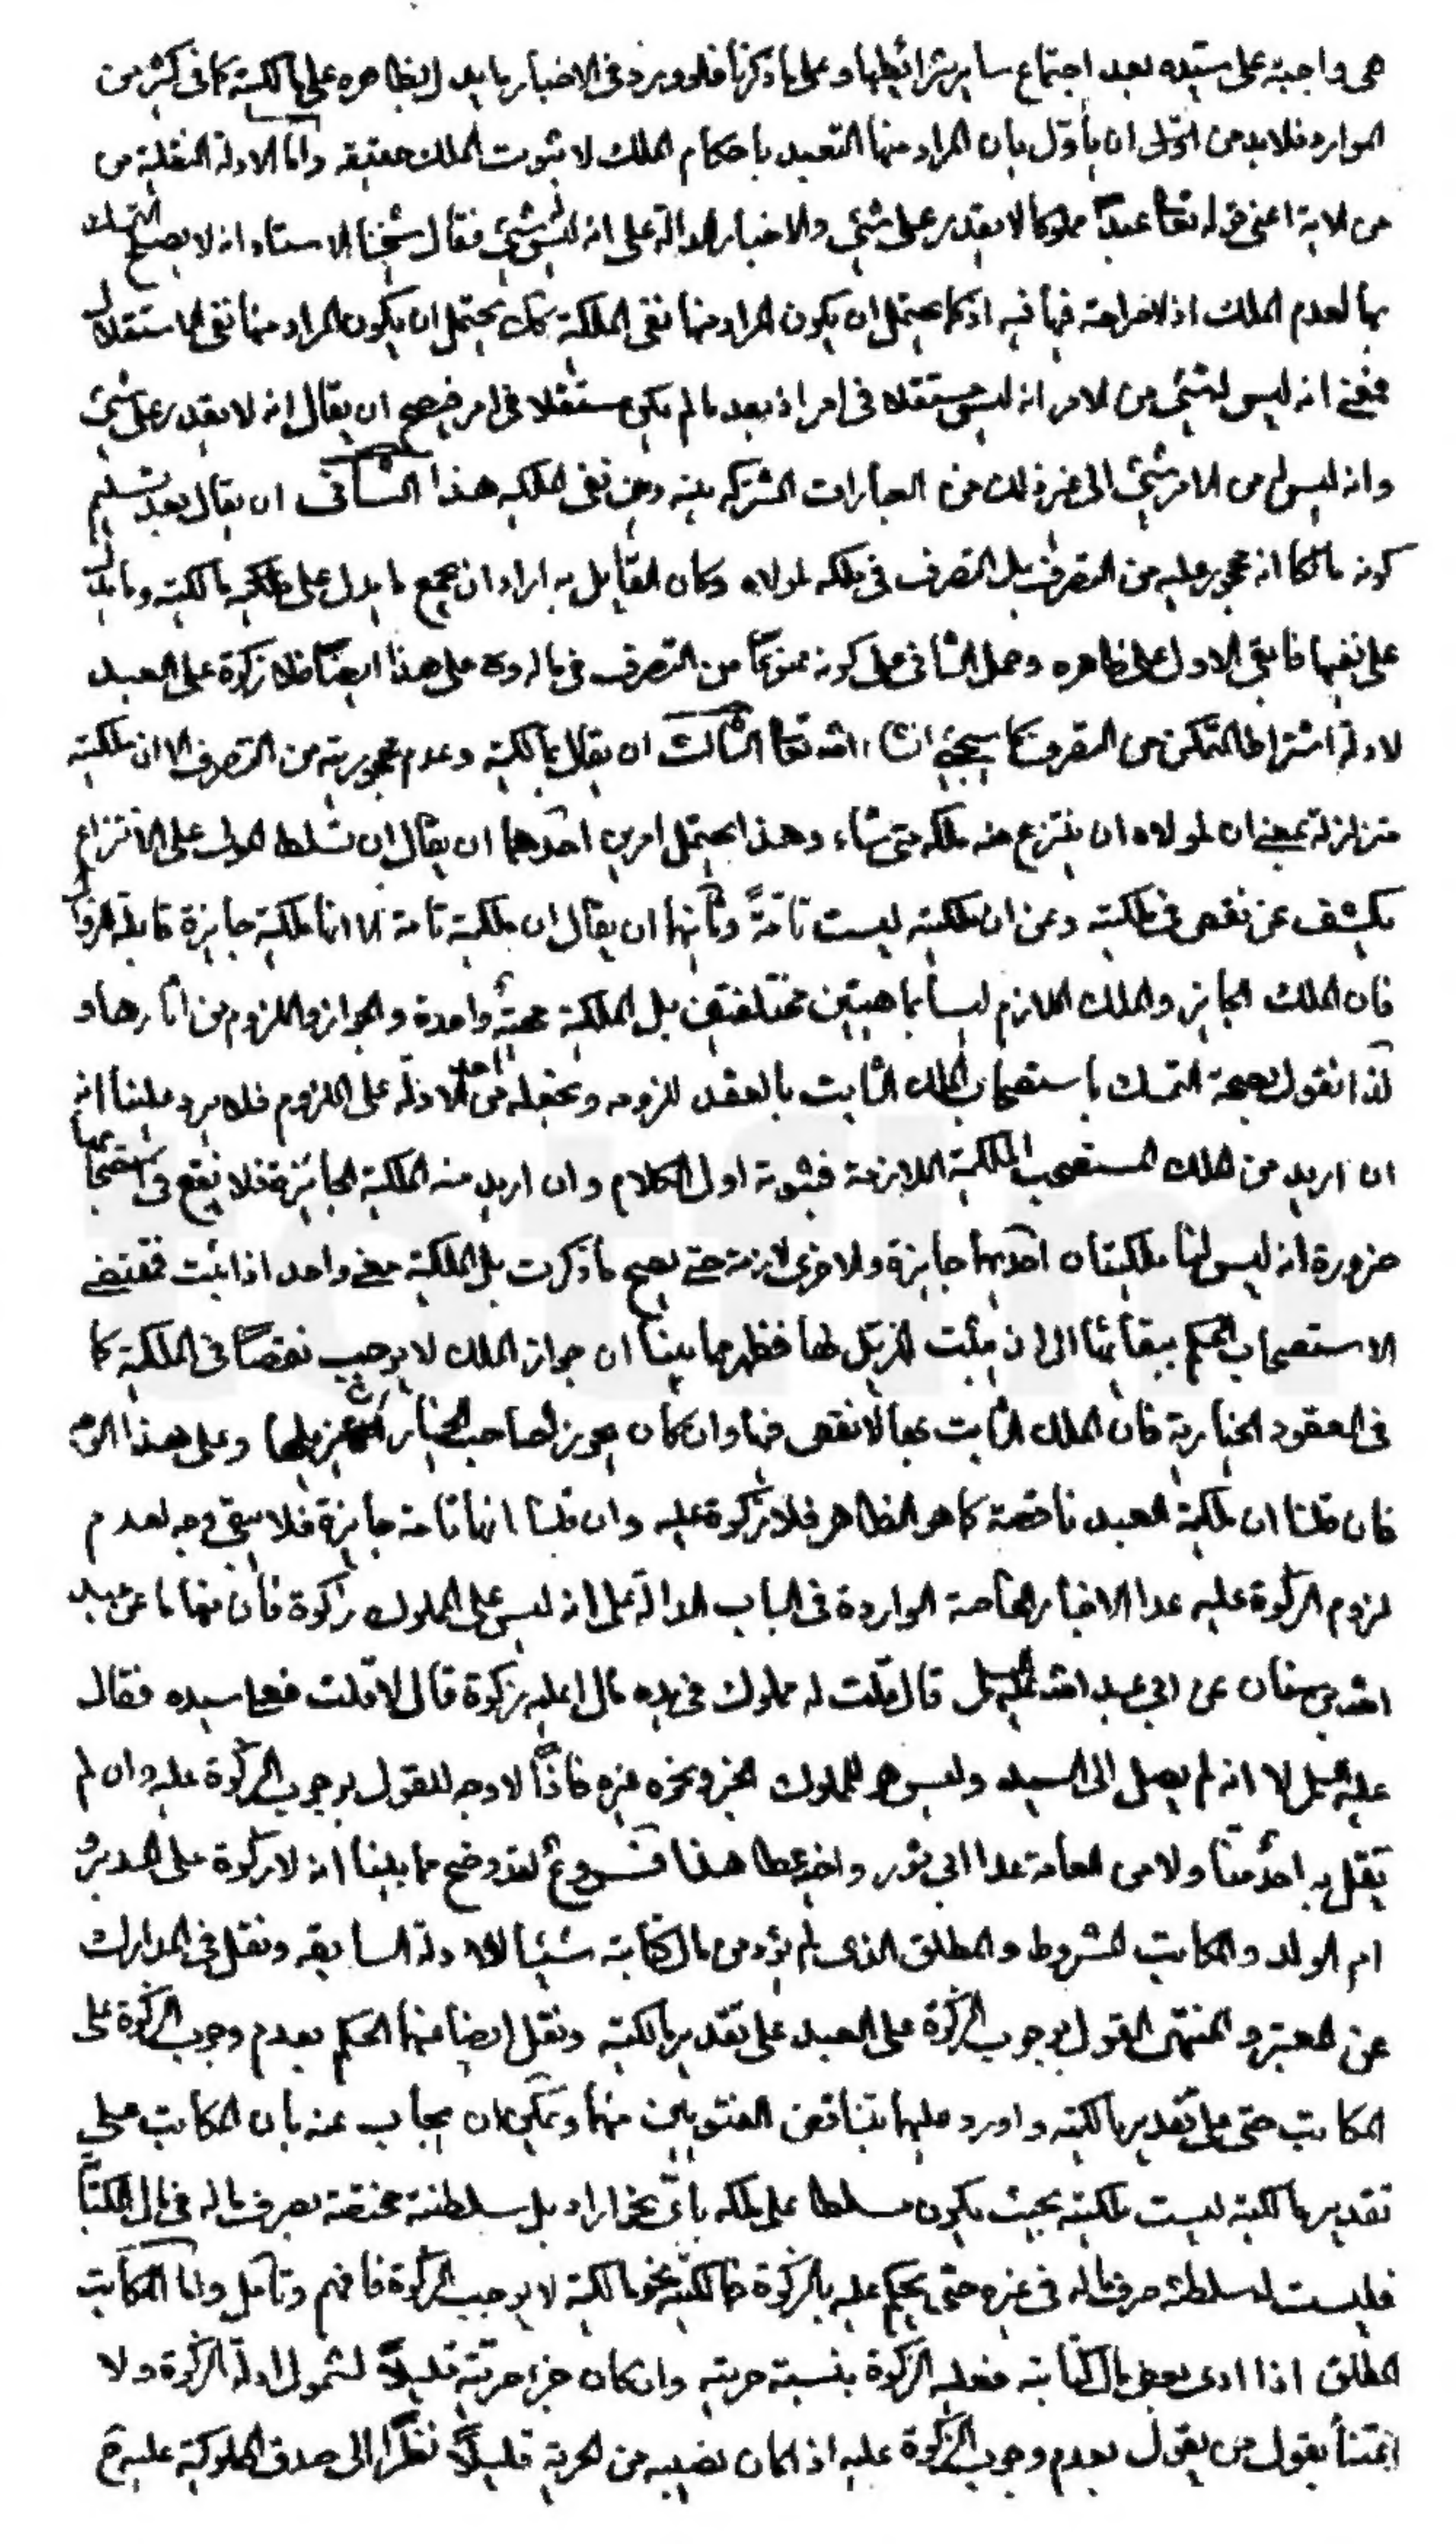 هى واجبة على سيده بعد اجتماع ساير شرائطها وعلى ما ذكرنا فلو ورد فى الاخبار ما يدل بظاهره على مالكيته كما فى كثير من
الموارد فلا بد من القول ان يأول بان المراد منها التعبد باحكام الملك لا بثبوت الملك حقيقه وامّا الادلة النقلية من
من الاية اعنى قوله تعالى عبدًا مملوكا لا يقدر على شئى والاخبار الدالة على انه ليس له شئى فقال شيخنا الاستاد انه لا يصح التمسك
بها لعدم الملك اذ لا صراحة فيها فيه اذ كما يحتمل ان يكون المراد منها نفى الملكية كك يحتمل ان يكون المراد منها نفى الاستقلال
فمعنى انه ليس له شئى من الامر انه ليس مستقلا فى امر اذ بعد ما لم يكن مستقلا فى امر فيصح ان يقال انه لا يقدر على شئى
وانه ليس له من الامر شئى الى غير ذلك من العبارات المشتركه بينه وبين نفى الملكيه هذا الثانى ان يقال بعد تسليم
كونه مالكا انه محجور عليه من التصرف بل التصرف فى ملكه لمولاه وكان القايل به اراد ان يجمع ما يدل على مالكيته وما يدل
على نفيها فابقى الاول على ظاهره وحمل الثانى على كونه ممنوعًا من التصرف فى ماله وعلى هذا ايضًا فلا زكوة على العبد
لادلة اشتراط التمكن من التصرف كما سيجئى انشاء الله تعالى الثالث ان يقال بمالكيته وعدم محجوريته من التصرف الا ان ملكيته
متزلزلة بمعنى ان لمولاه ان ينتزع منه ملكه متى شاء وهذا يحتمل امرين احدهما ان يقال ان تسلط المولى على الانتزاع
يكشف عن نقص فى ملكيته وعن ان ملكيته ليست تامّةً وثانيهما ان يقال ان ملكيته تامة الا انها ملكية جايزة قابلة الزوال
فان الملك الجايز والملك اللازم ليسا بماهيتين مختلفتين بل الملكية مهية واحدة والجواز واللزوم من اثارها و
لذا نقول بصحة التمسك باستصحاب الملك الثابت بالعقد للزومه ونجعله من احد الادلة على اللزوم فلا يرد علينا انه
ان اريد من الملك المستصحب الملكية اللازمة فثبوته اول الكلام وان اريد منه الملكية الجائزة فلا ينفع فى استصحابها
ضرورة انه ليس لنا ملكيتان احديهما جايزة والاخرى لازمة حتى يصح ما ذكرت بل الملكية معنى واحد اذا ثبت فمقتضى
الاستصحاب الحكم ببقائها الى ان يثبت المزيل لها فظهر مما بينا ان جواز الملك لا يوجب نقصًا فى الملكية كما
فى العقود الخيارية فان الملك الثابت بها لا نقص فيها وان كان يجوز لصاحب الخيار ان يزيلها وعلى هذا
فان قلنا ان ملكية العبد ناقصة كما هو الظاهر فلا زكوة عليه وان قلنا انها تامة جايزة فلا يبقى وجه لعدم
لزوم الزكوة عليه عدا الاخبار الخاصة الواردة فى الباب الدالة على انه ليس على المملوك زكوة فان منها ما عن عبد
الله بن سنان عن ابى عبد الله عليه السلام قال قلت له مملوك فى يده مال اعليه زكوة قال لا قلت فعلى سيده فقال
عليه السلام لا انه لم يصل الى السيد وليس هو للمملوك الخبر ونحوه غيره فاذًا لا وجه للقول بوجوب الزكوة عليه وان لم
يقل به احدٌ منّا ولا من العامة عدا ابى ثور واخر عطا هذا فروع لقد وضح مما بينا انه لا زكوة على المدبر و
ام الولد والمكاتب المشروط والمطلق الذى لم يؤد من مال الكتابة شيئًا للادلة السابقه ونقل فى المدارك
عن المعتبر والمنتهى القول بوجوب الزكوة على العبد على تقدير مالكيته ونقل ايضا منهما الحكم بعدم وجوب الزكوة على
المكاتب حتى على تقدير مالكيته واورد عليهما بتناقض الفتويين منهما ويمكن ان يجاب عنه بان المكاتب على
تقدير مالكيته ليست ملكيته بحيث يكون مسلطا على ملكه باىّ نحو اراد بل سلطنته مختصة بصرف ماله فى مال الكتابة
فليست له سلطنة صرف ماله فى غيره حتى يحكم عليه بالزكوة فمالكيته نحو مالكية لا يوجب الزكوة فافهم وتأمل وامّا المكاتب
المطلق اذا ادى بعض مال الكتابة فعليه الزكوة بنسبة حريته وان كان جزء حريته قليلًا لشمول ادلة الزكوة ولا
يقول من يقول بعدم وجوب الزكوة عليه اذا كان نصيبه من الحرية قليلًا نظرًا الى صدق المملوكية عليه